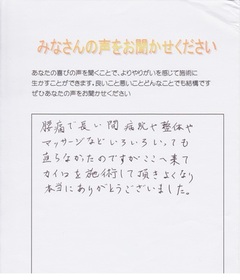 みなさんの声をお聞かせください
あなたの喜びの声を聞くことで、よりやりがいを感じて施術に
生かすことができます。良いこと悪いことどんなことでも結構です
ぜひあなたの声をお聞かせください
腰痛で長い間病院や整体や
マッサージなどいろいろいっても
直らなかったのですがここへ来て
カイロを施術して頂きよくなり
本当にありがとうございました。